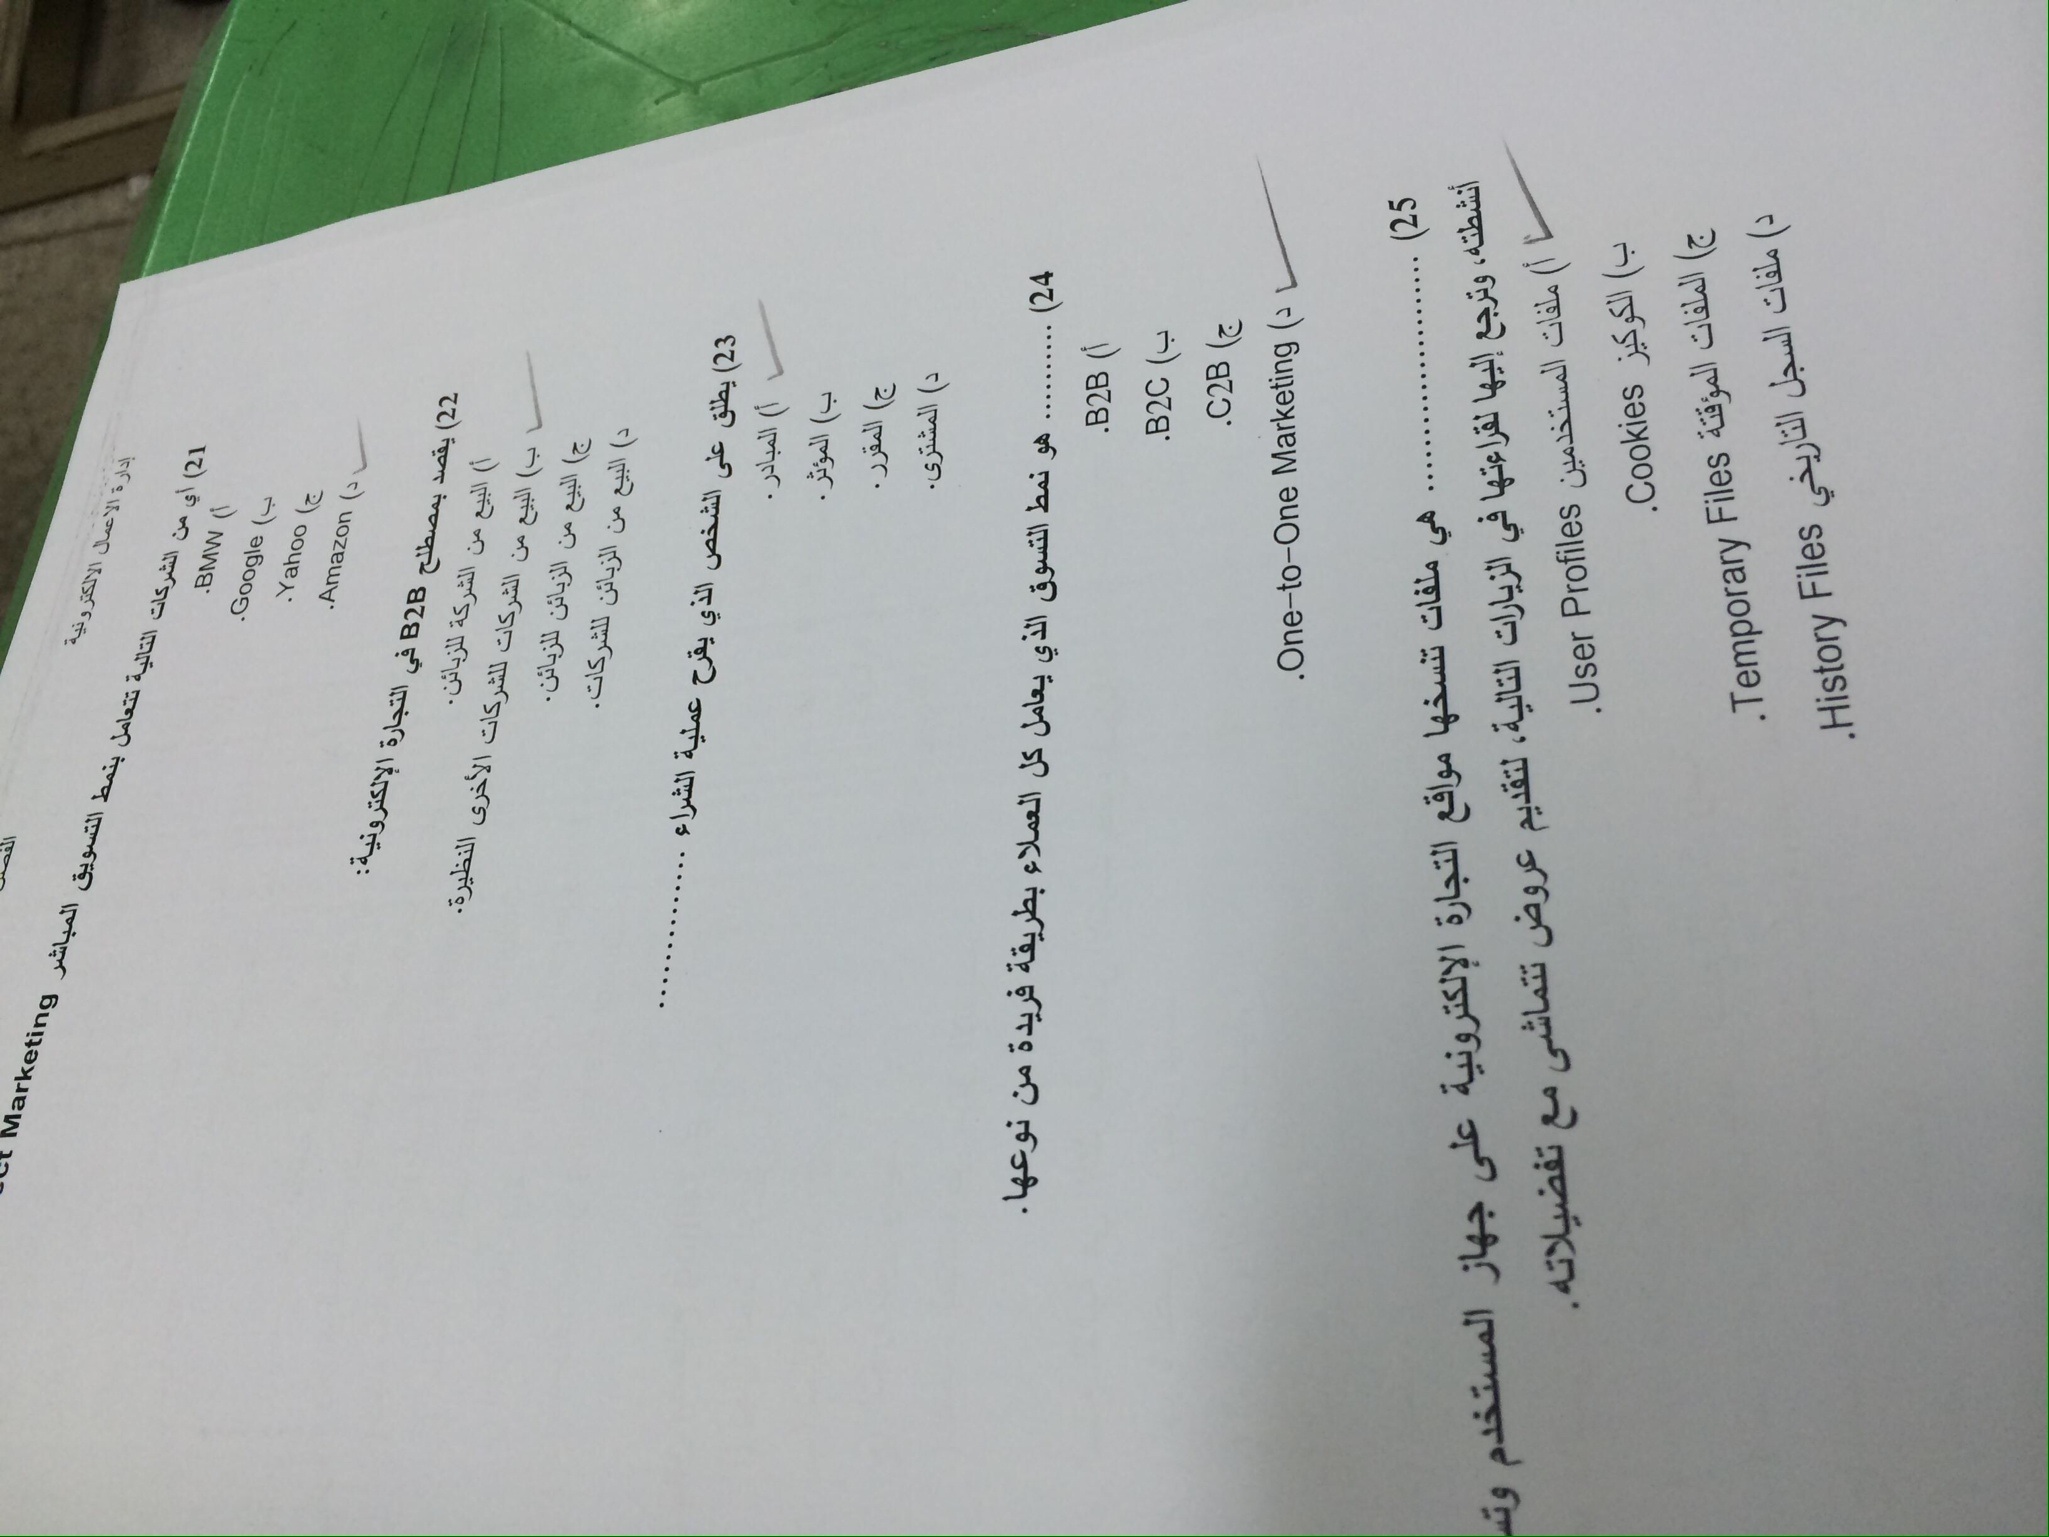 إدارة الاعمال الالكترونية
21) أي من الشركات التالية تتعامل بنمط التسويق المباشر Marketing
أ) BMW.
ب) Google.
ج) Yahoo.
د) Amazon.
22) يقصد بمصطلح B2B في التجارة الإلكترونية:
أ) البيع من الشركة للزبائن.
ب) البيع من الشركات للشركات الأخرى النظيرة.
ج) البيع من الزبائن للزبائن.
د) البيع من الزبائن للشركات.
23) يطلق على الشخص الذي يقرح عملية الشراء ............
أ) المبادر.
ب) المؤثر.
ج) المقرر.
د) المشترى.
24) ........... هو نمط التسوق الذي يعامل كل العملاء بطريقة فريدة من نوعها.
أ) B2B.
ب) B2C.
ج) C2B.
د) One-to-One Marketing.
25) ..................... هي ملفات تنسخها مواقع التجارة الإلكترونية على جهاز المستخدم
أنشطته، وترجع إليها لقراءتها في الزيارات التالية، لتقديم عروض تتماشى مع تفضيلاته.
أ) ملفات المستخدمين User Profiles.
ب) الكوكيز Cookies.
ج) الملفات المؤقتة Temporary Files.
د) ملفات السجل التاريخي History Files.